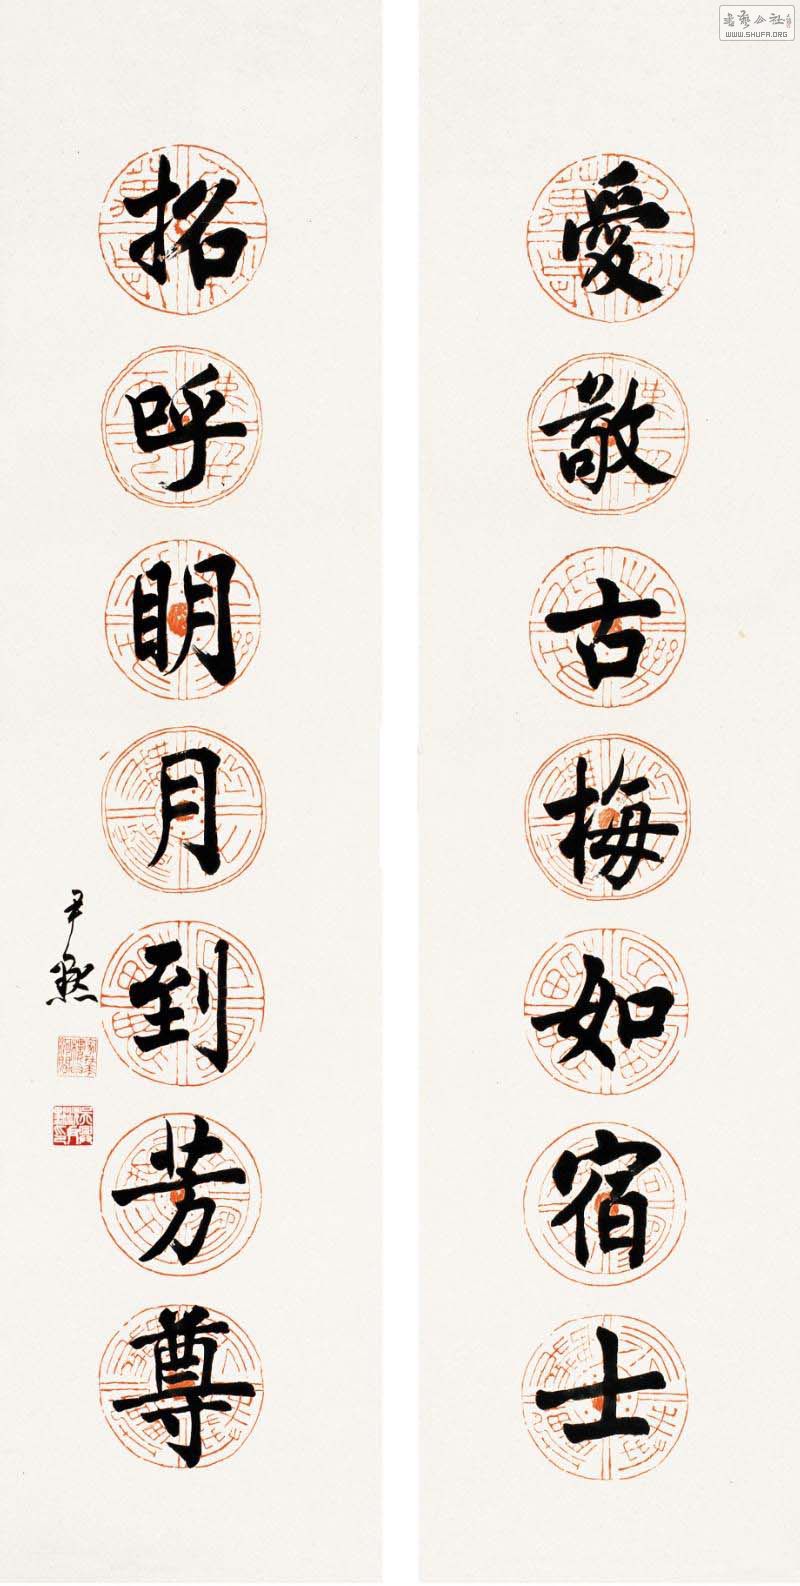 愛敬古梅如宿士
招呼明月到芳尊
尹默
書藝公社
WWW.SHUFA.ORG